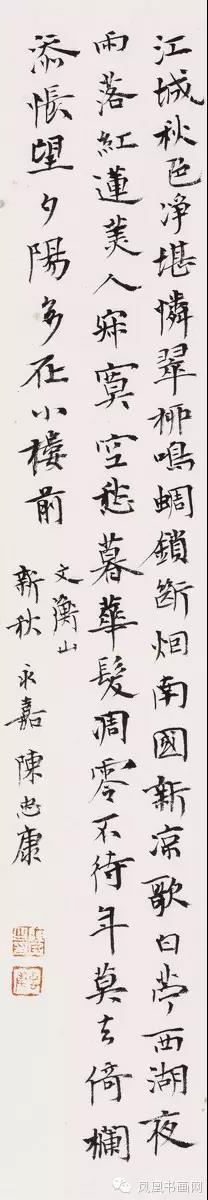 江城秋色净堪憐翠柳鳴蜩鎖斷烟南國新凉歌白苧西湖夜
雨落紅蓮美人寂寞空愁暮華髮凋零不待年莫去倚欄
添悵望夕陽多在小樓前
文衡山
新秋永嘉陳忠康
凤凰书画网